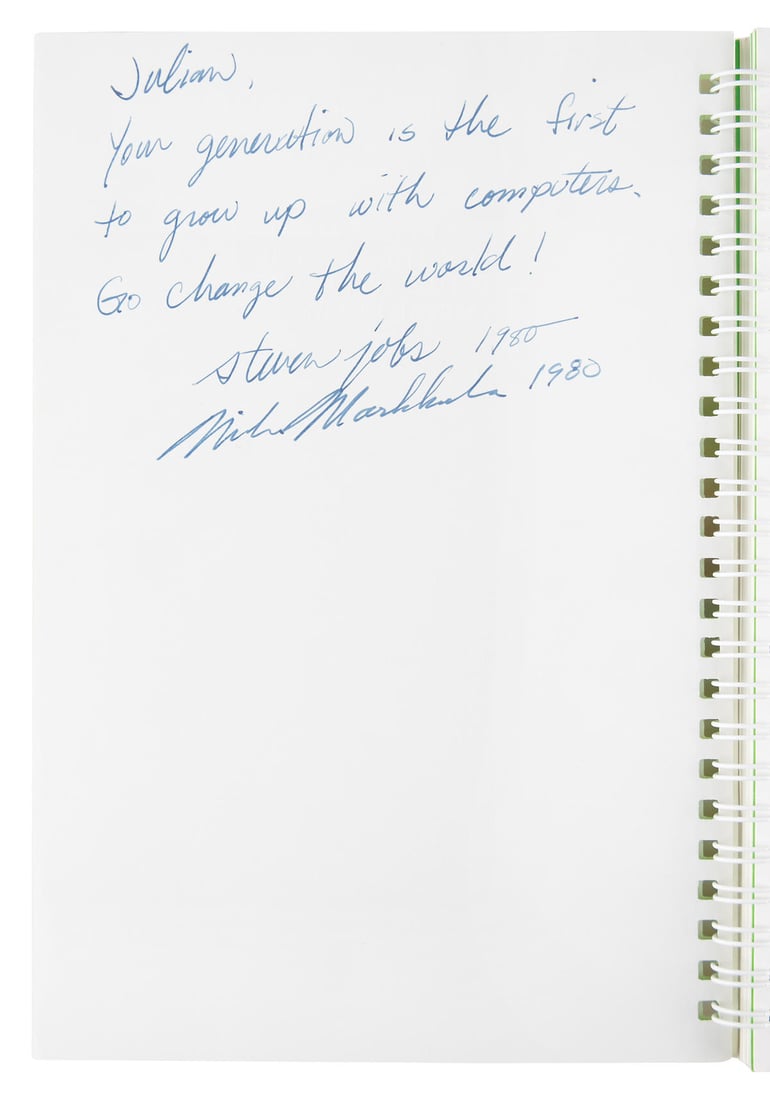 Julian,
Your generation is the first
to grow up with computers.
Go change the world!
steven jobs 1980
Mike Markkula 1980